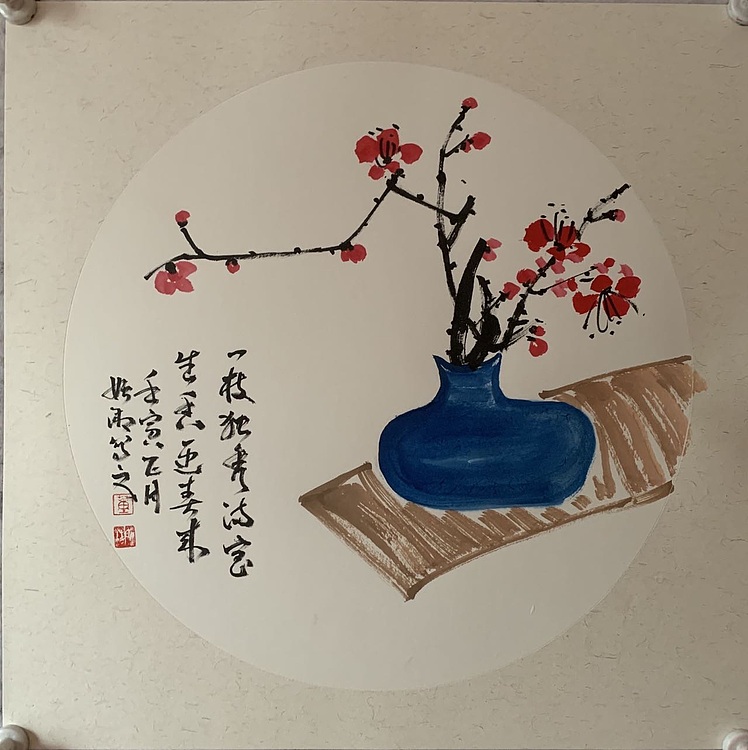 一枝独秀满室
生香迎春来
壬寅正月
雨笃之